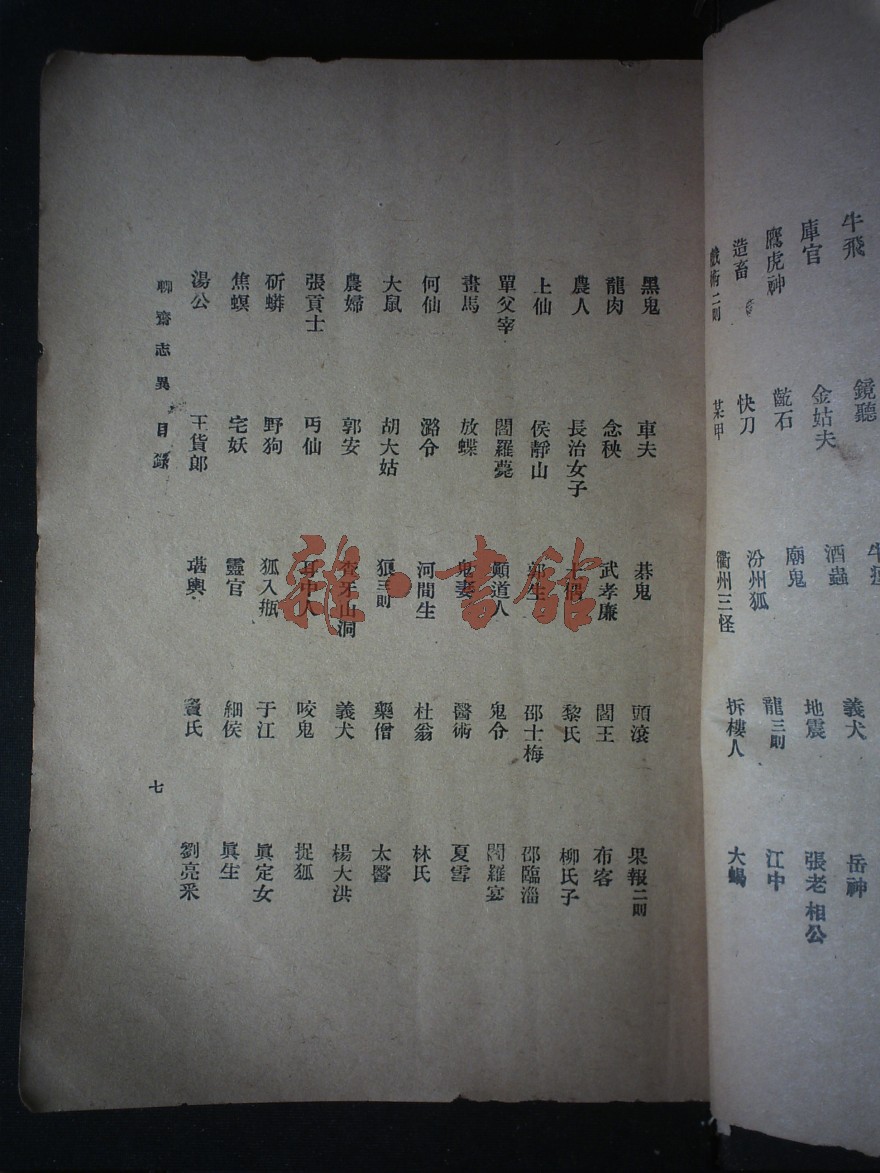 牛飛 鏡聽 牛
庫官 金姑夫 酒蟲 義犬 岳神
鷹虎神 齕石 廟鬼 地震 張老相公
造畜 快刀 汾州狐 龍三則 江中
戲術二則 某甲 衢州三怪 拆樓人 大蝎
黑鬼 車夫 碁鬼 頭滾 果報二則
龍肉 念秧 武孝廉 閻王 布客
農人 長治女子 土偶 黎氏 柳氏子
上仙 侯靜山 郭生 邵士梅 邵臨淄
單父宰 閻羅薨 顚道人 鬼令 閻羅宴
畫馬 放蝶 鬼妻 醫術 夏雪
何仙 潞令 河間生 杜翁 林氏
大鼠 胡大姑 狼三則 藥僧 太醫
農婦 郭安 查牙山洞 義犬 楊大洪
張貢士 丐仙 耳中人 咬鬼 捉狐
斫蟒 野狗 狐入瓶 于江 眞定女
焦螟 宅妖 靈官 細侯 眞生
湯公 王貨郎 堪輿 竇氏 劉亮釆
聊齋志異 目錄 七
雜·書館